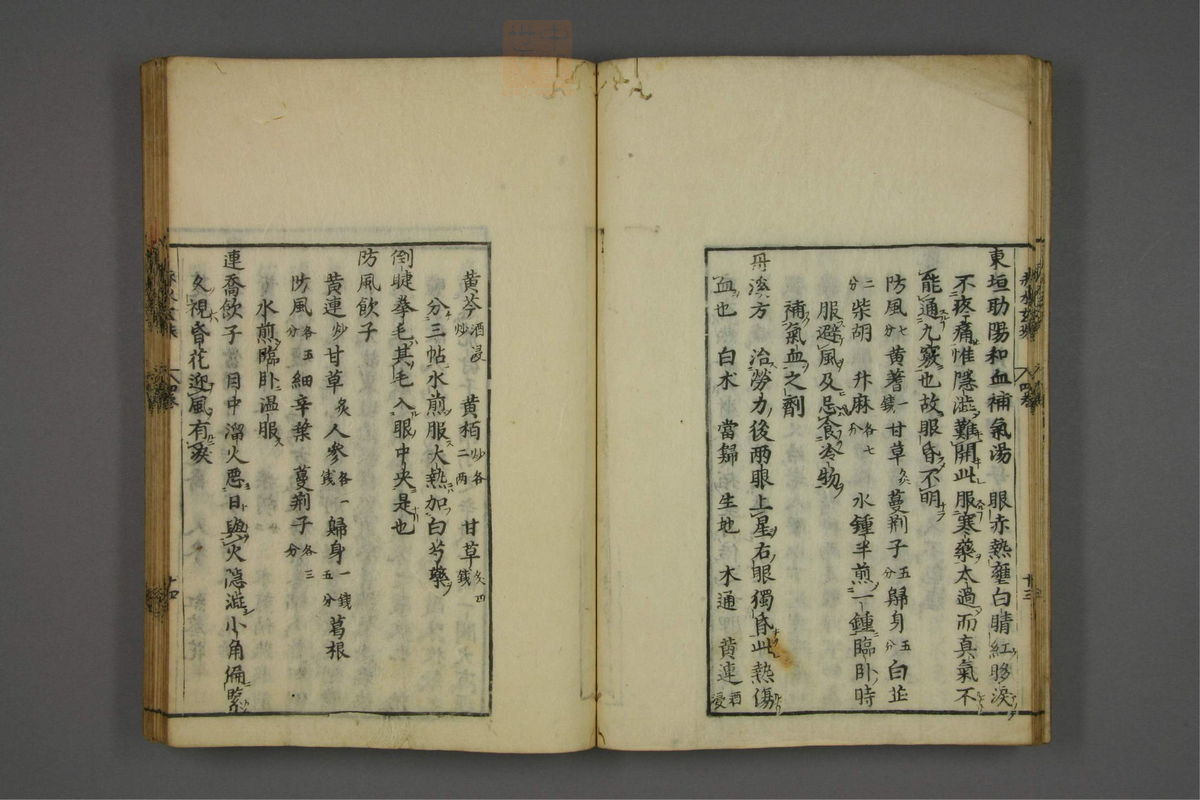 東垣助陽和血補氣湯 眼赤熱壅白睛紅眵淚
不疼痛惟隱澁難開此服寒藥太過而真氣不
能通九竅也故眼昏不明
防風七分黄蓍一錢甘草炙蔓荆子五分歸身五分白芷
二分柴胡 升麻各七分 水鍾半煎一鍾臨卧時
服避風及忌食冷物
補氣血之劑
丹溪方 治勞力後兩眼上星右眼獨昏此熱傷
血也 白术 當歸 生地 木通 黄連酒浸
黄芩酒浸炒 黄栢炒各二兩 甘草炙四錢
分三帖水煎服大熱加白芍藥
倒睫拳毛其毛入眼中央是也
防風飲子
黄連炒甘草炙人參各一錢歸身一錢五分葛根
防風各五分細辛葉 蔓荆子各三分
水煎臨卧温服
連喬飲子 目中溜火惡日與火隱澁小角偏緊
久視昏花迎風有淚
十三
四卷
十四